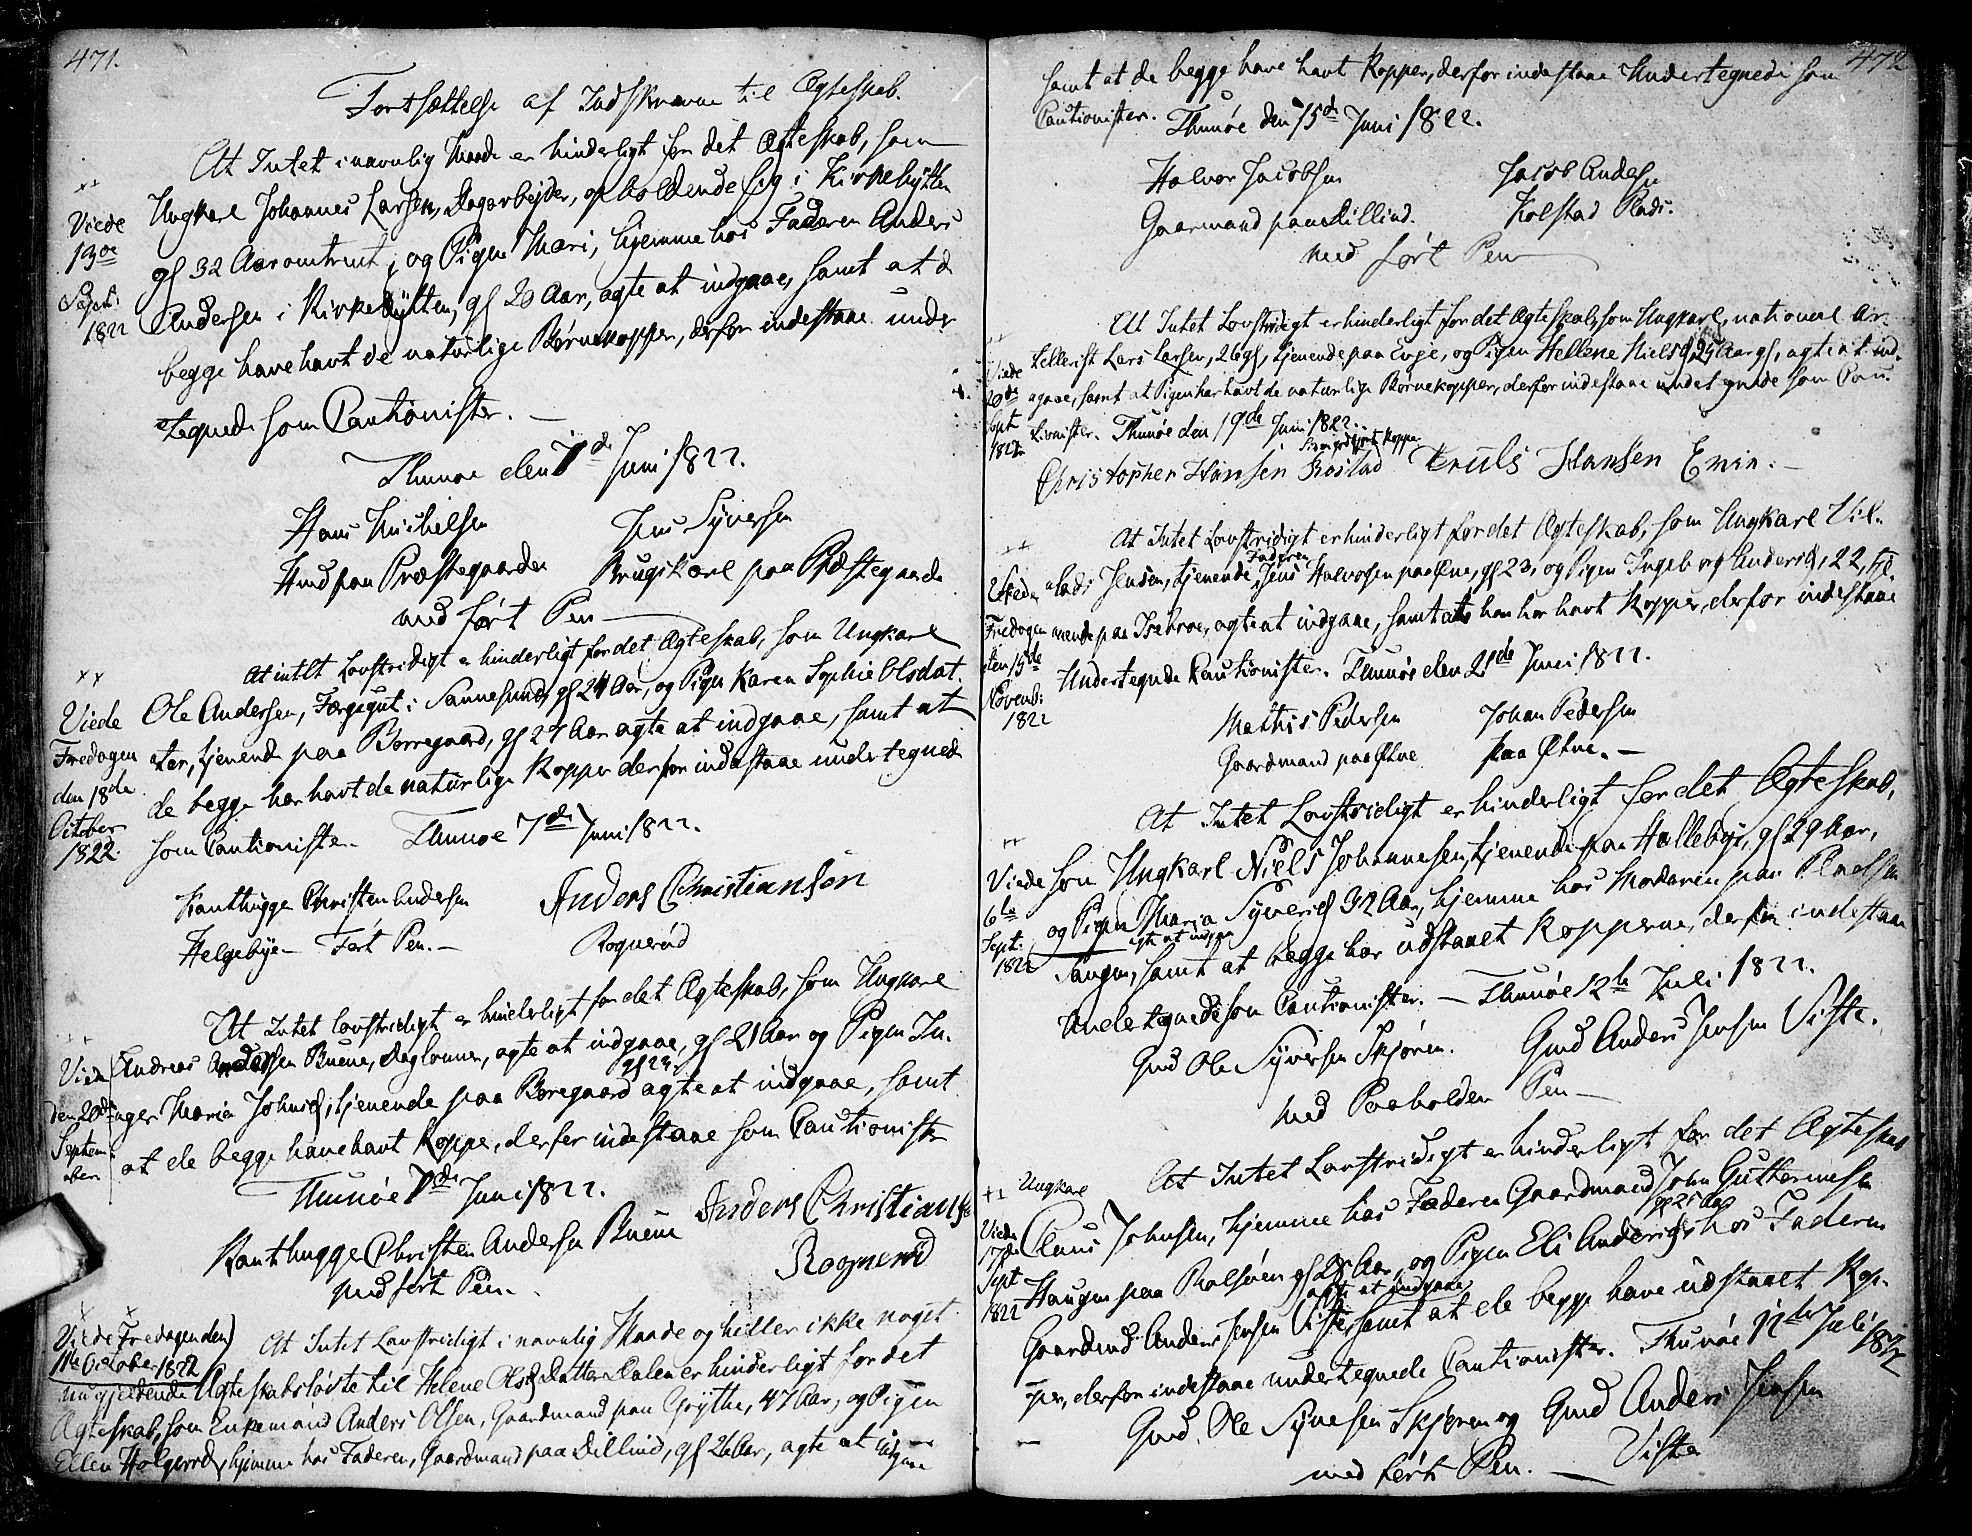 471.
Fortsættelse af Indskrevne til Ægteskab.
At Intet i navnlig Maade er hinderligt for det Ægteskab, som
Viede
13de
Septbr:
1822
Ungkarl Johannes Larsen, Dagarbejder, opholdende sig i Kirkehytten
gl 32 Aar omtrent, og Pigen Mari, hjemme hos Faderen Anders
Andersen i Kirkehytten, gl 20 Aar, agte at indgaae, samt at de
begge have havt de naturlige Børnekopper, derfor indestaae under
tegnede som Cautionister.
Thunøe den 7de Juni 1822.
Hans Michelsen
Jens Syversen
Hmd paa Præstegaarden
Brugskarl paa Præstegaarde
med ført Pen
At intet Lovstridigt er hinderligt for det Ægteskab, som Ungkarl
Viede
Fredagen
den 18de
October
1822.
Ole Andersen, Færgegut i Sannesund, gl 24 Aar, og Pigen Karen Sophie Olsdat
ter, tjenende paa Borregaard, gl 27 Aar agte at indgaae, samt at
de begge har havt de naturlige Kopper derfor indestaae undertegnede
som Cautionister. Thunøe 7de Juni 1822.
Kanthugge Christen Andersen
Anders Christiansøn
Helgebye ført Pen.
Rognerød
At Intet lovstridigt er hinderligt for det Ægteskab, som Ungkarl
Viede
den 20de
Septem
ber
Andreas Andersen Buene, Daglønner, agte at indgaae, gl 21 Aar og Pigen In-
gl 23.
ger Maria Johnsd, tjenende paa Borregaard agte at indgaae, samt
at de begge have havt Kopper, derfor indestaae som Cautionister
Thunøe 7de Juni 1822.
Kanthugge Christen Andersen Buene
Anders Christians
Rognerød
med ført Pen.
Viede Fredagen den
11te October 1822
At Intet Lovstridigt i navnlig Maade og heller ikke noget
nu gjeldende Ægteskabsløvte til Helene Olsd Datter Dalen er hinderligt for det
Ægteskab, som Enkemand Anders Olsen, Gaardmand paa Grytte, 47 Aar, og Pigen
Ellen Holgersd, hjemme hos Faderen, Gaardmand paa Dillind, gl 26 Aar, agte at indgaae
472
samt at de begge have havt Kopper, derfor indestaae Undertegnede som
Cautionister. Thunøe den 15de Juni 1822.
Halvor Jacobsen
Jacob Anders
Gaarmand paa Dillind.
Kolstad Plads.
med ført Pen
At Intet Lovstridigt er hinderligt for det Ægteskab, som Ungkarl, national Ar-
Viede
20de
Sept
1822
tellerist Lars Larsen, 26 gl, tjenende paa Evje, og Pigen Hellene Nielsd, 25 Aar gl, agte at ind-
agaae, samt at Pigen har havt de naturlige Børnekopper, derfor indestaae undertegnde som Cau-
tionister. Thunøe den 19de Juni 1822.
Christopher Hansen Bostad Truls Hansen Enin.
At Intet Lovstridigt er hinderligt for det Ægteskab, som Ungkarl Vil-
Viede
Fredagen
den 15de
Novemb:
1822
Faderen
Jensen, tjenende Jens Halvorsen paa Øtne, gl 23, og Pigen Ingeborg Andersd, 22, tje-
nende paa agte at indgaae, samt at han har havt Kopper, derfor indestaae
Undertegnde Cautionister. Thunøe den 21de Juni 1822.
Mathis Pedersen
Johan Pedersen
Gaardmand paa Øtne
paa Øtne.
At Intet Lovstridigt er hinderligt for det Ægteskab,
Viede
6te
Sept.
1822
som Ungkarl Niels Johannesen, tjenende paa Hallebye, gl 29 Aar,
og Pigen Maria Syversd 32 Aar, hjemme hos Moderen paa Pladsen
agte at indgaa
Haugen, samt at begge har udstaaet Kopperne, derfor indestaae
Undertegnede som Cautionister. Thunøe 12te Juli 1822.
Gmd Ole Syversen Skjøren.
Gmd Anders Jensen Viste.
med Paaholden Pen
At Intet Lovstridigt er hinderligt for det Ægteskab
Viede
17de
Sept
1822
Ungkarl
Claus Johnsen, hjemme hos Faderen Gaardmand John Guttormsen
gl 25 Aar
Haugen paa Rolsøen gl 28 Aar, og Pigen Eli Andersd hos Faderen
agte at indgaae
Gaardmd Anders Jensen Viste samt at de begge have udstaaet Kop-
per, derfor indestaae undertegnede Cautionister. Thunøe 12te Juli 1822
Gmd. Ole Syversen Skjøren og Gmd Anders Jensen
Viste
med ført Pen.